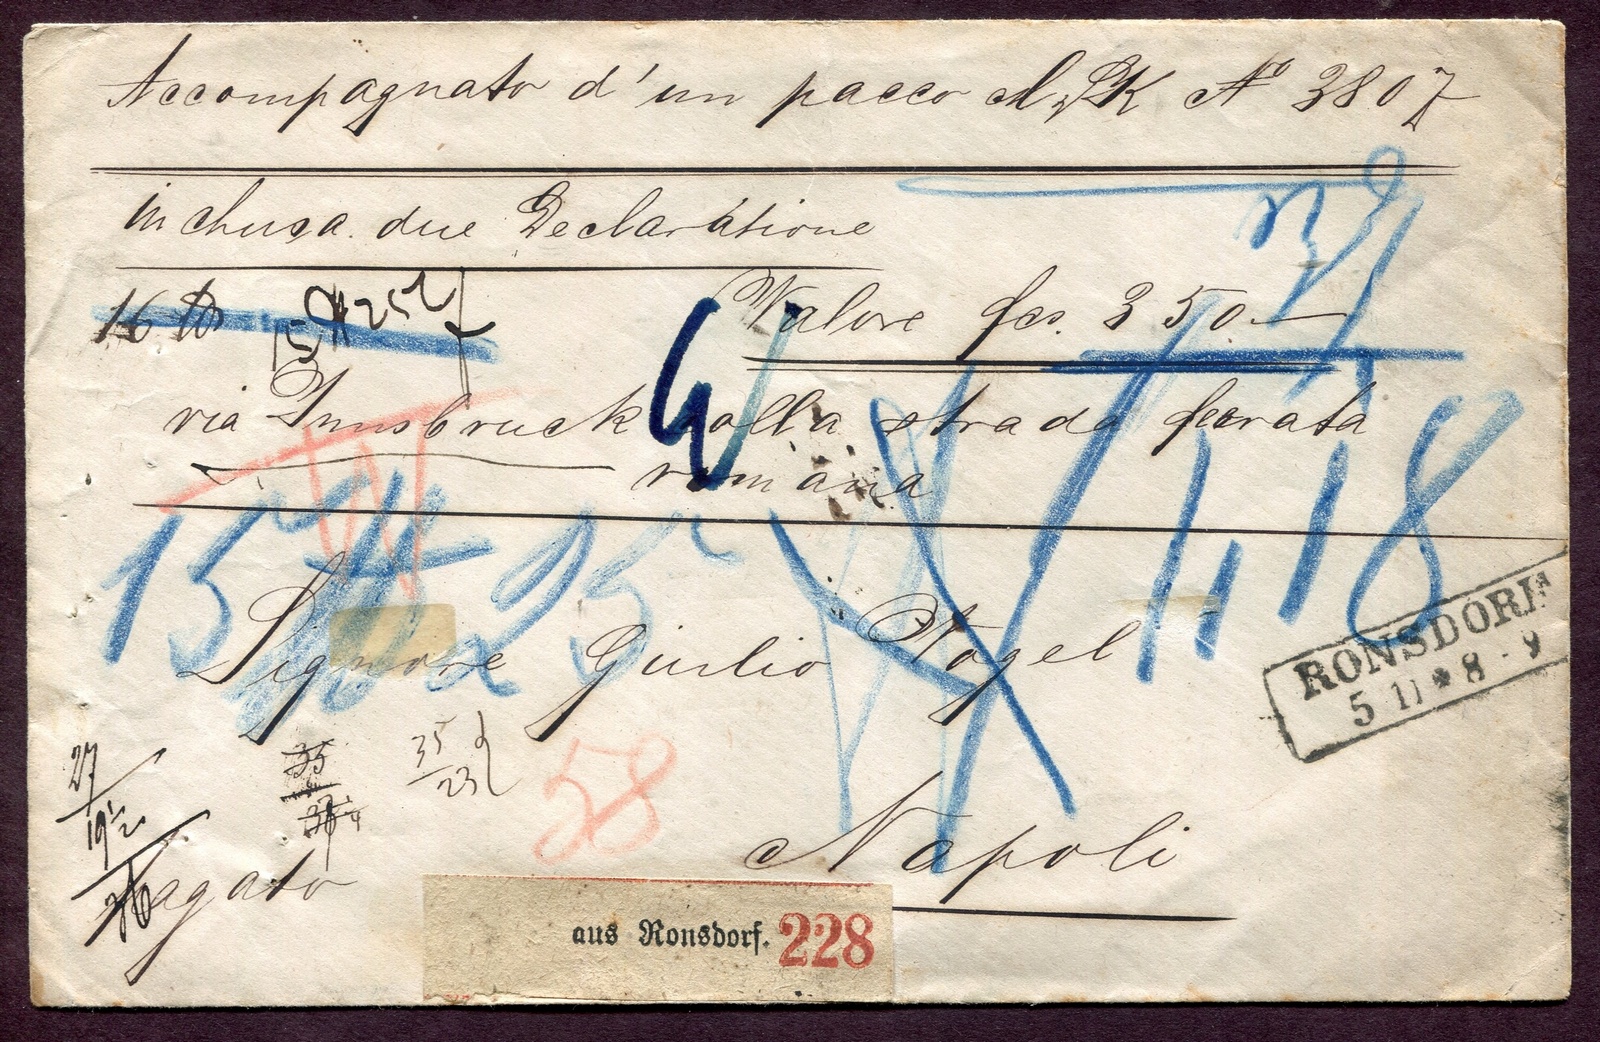 Accompagnato d'un pacco No 3807
inchusa due Declaratione
16 15 252
Valore fcs. 350
via Innsbruck colla strada ferrata
romana
15 25 1 18
Signore Giulio Vogel
RONSDORF
5 11 * 8 - 9
27
19 1/2
35
35
23
58
Napoli
Pagato
aus Ronsdorf. 228